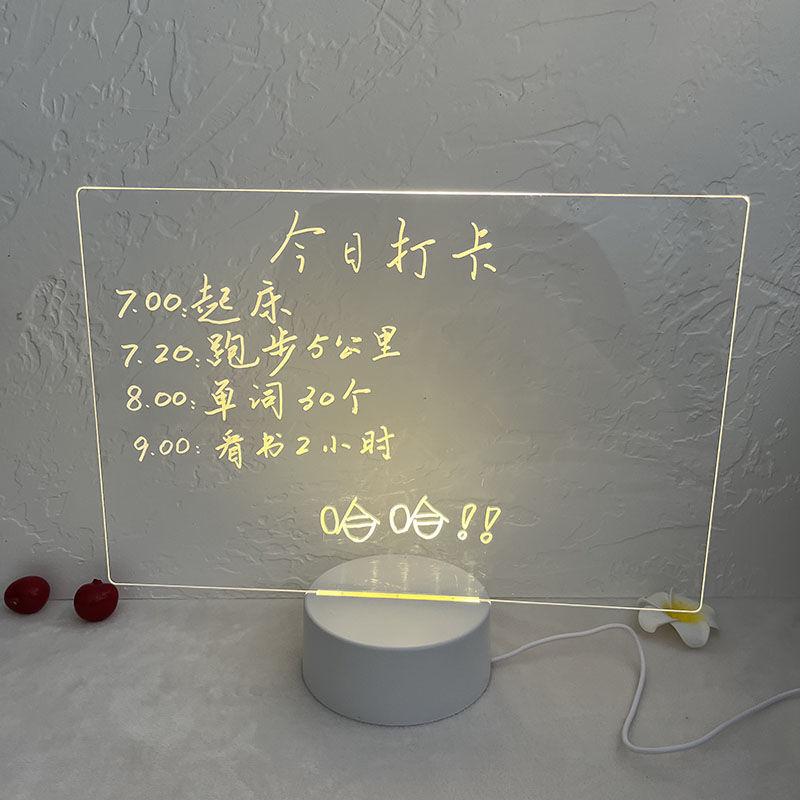 今日打卡
7.00:起床
7.20:跑步5公里
8.00:单词30个
9.00:看书2小时
哈哈!!